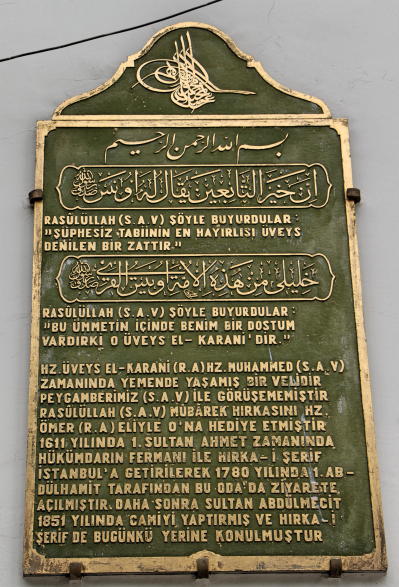 بسم الله الرحمن الرحيم
ان خير التابعين يقال له اويس
RASÛLÜLLAH (S.A.V) ŞÖYLE BUYURDULAR:
"ŞÜPHESİZ TABİİNİN EN HAYIRLISI ÜVEYS
DENİLEN BİR ZATTIR."
خليلي من هذه الامة اويس القرني
RASÛLÜLLAH (S.A.V) ŞÖYLE BUYURDULAR:
"BU ÜMMETİN İÇİNDE BENİM BİR DOSTUM
VARDIRKİ O ÜVEYS EL-KARANİ'DİR."
HZ. ÜVEYS EL-KARANİ (R.A) HZ. MUHAMMED (S.A.V)
ZAMANINDA YEMENDE YAŞAMIŞ BİR VELİDİR
PEYGAMBERİMİZ (S.A.V) İLE GÖRÜŞEMEMİŞTİR
RASÛLÜLLAH (S.A.V) MÜBÂREK HIRKASINI HZ.
ÖMER (R.A) ELİYLE O'NA HEDİYE ETMİŞTİR
1611 YILINDA 1. SULTAN AHMET ZAMANINDA
HÜKÜMDARIN FERMANI İLE HIRKA-İ ŞERİF
İSTANBUL'A GETİRİLEREK 1780 YILINDA 1. AB-
DÜLHAMİT TARAFINDAN BU ODA'DA ZİYARETE
AÇILMIŞTIR. DAHA SONRA SULTAN ABDÜLMECİT
1851 YILINDA CAMİYİ YAPTIRMIŞ VE HIRKA-İ
ŞERİF DE BUGÜNKÜ YERİNE KONULMUŞTUR